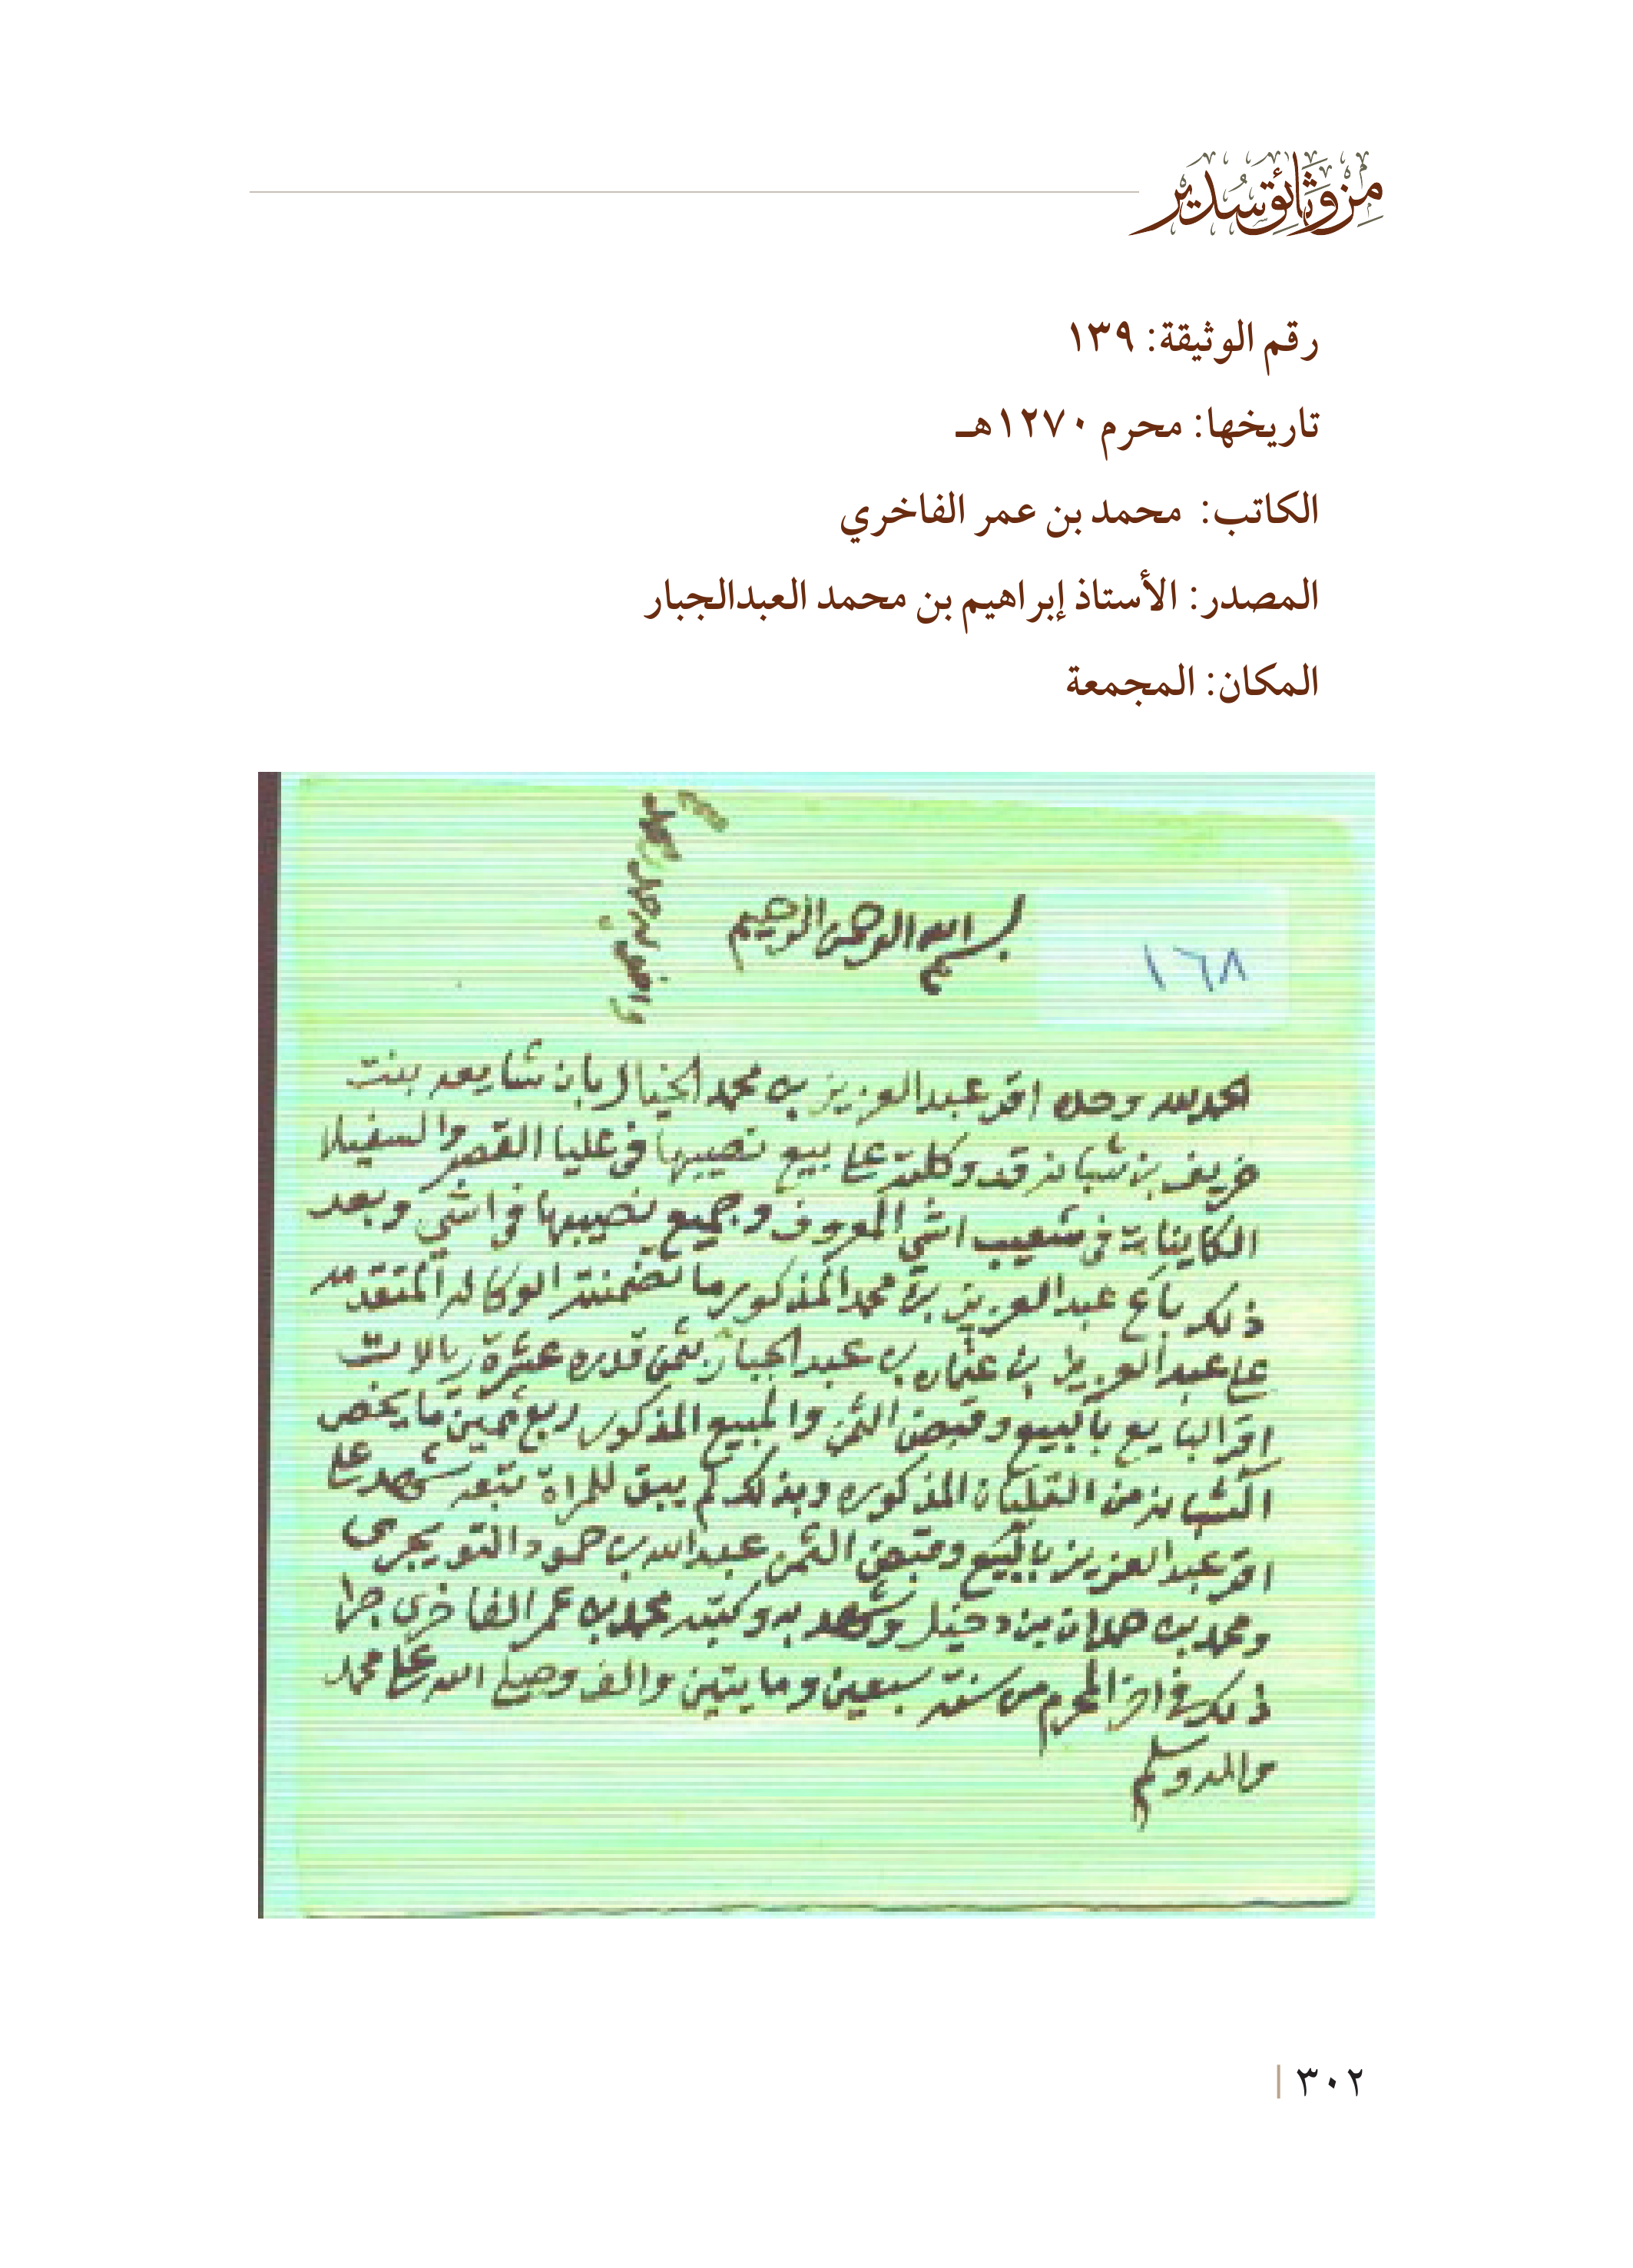 من وثائق سدير
رقم الوثيقة: ١٣٩
تاريخها: محرم ١٢٧٠هـ
الكاتب: محمد بن عمر الفاخري
المصدر: الأستاذ إبراهيم بن محمد العبدالجبار
المكان: المجمعة
بسم الله الرحمن الرحيم
١٦٨
الحمد لله وحده اقر عبدالعزيز بن محمد الخيال بان شايعه بنت
خريف بن شبانه قد وكلته على بيع نصيبها في عليا القصر والسفيلا
الكاينات في شعيب اشي المعروف وجميع نصيبها في اشي وبعد
ذلك باع عبدالعزيز بن محمد المذكور ما تضمنته الوكاله المتقدمه
على عبدالعزيز بن عثمان بن عبدالجبار بثمن قدره عشرة ريالات
اقر البايع بالبيع وقبض الثمن والمبيع المذكور ربع ثمين ما يخص
الشبانه من القلبان المذكوره وبذلك لم يبق للمراة تبعه شهد على
اقر عبدالعزيز بالبيع وقبض الثمن عبدالله بن حمود التويجري
ومحمد بن حمدان بن دخيل وشهد به وكتبه محمد بن عمر الفاخري جرا
ذلك في اخر المحرم من سنة سبعين ومايتين والف وصلى الله على محمد
واله وسلم
٣٠٢